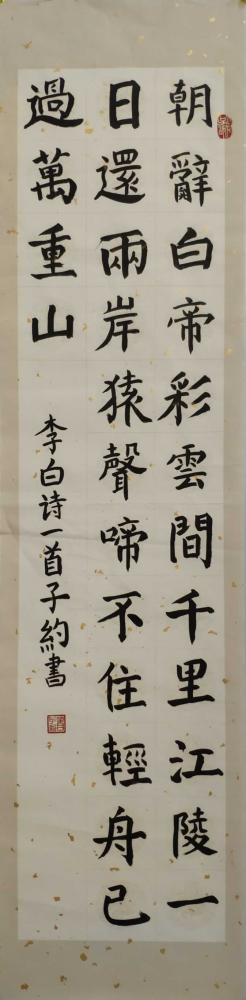 朝辭白帝彩雲間千里江陵一
日還兩岸猿聲啼不住輕舟已
過萬重山
李白诗一首子約書